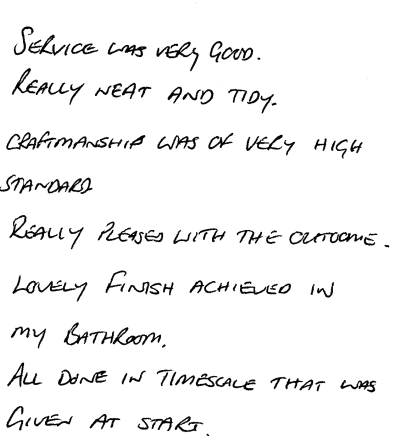 SERVICE WAS VERY GOOD.
REALLY NEAT AND TIDY.
CRAFTMANSHIP WAS OF VERY HIGH
STANDARD
REALLY PLEASED WITH THE OUTCOME.
LOVELY FINISH ACHIEVED IN
MY BATHROOM.
ALL DONE IN TIMESCALE THAT WAS
GIVEN AT START.